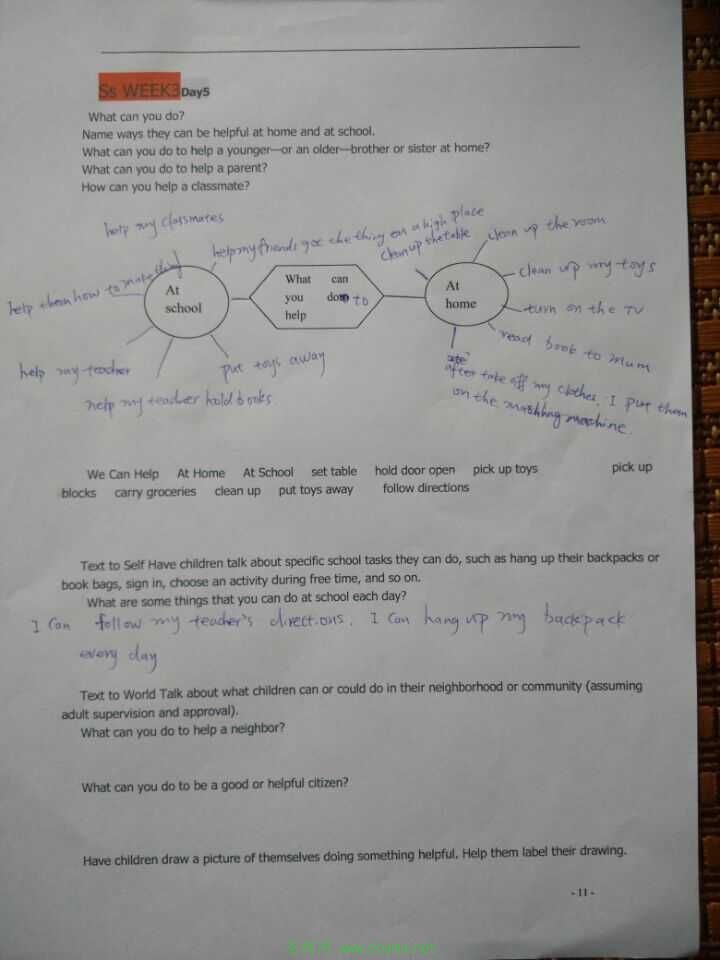 Ss WEEK3Day5
What can you do?
Name ways they can be helpful at home and at school.
What can you do to help a younger—or an older—brother or sister at home?
What can you do to help a parent?
How can you help a classmate?
help my classmates
help my friends get the thing on a high place
clean up the table
clean up the room
help them how to make thing
At school
What can you do to help
At home
clean up my toys
turn on the TV
read book to mum
help my teacher
put toys away
help my teacher hold books
after take off my clothes, I put them
on the washing machine.
We Can Help At Home At School set table hold door open pick up toys pick up
blocks carry groceries clean up put toys away follow directions
Text to Self Have children talk about specific school tasks they can do, such as hang up their backpacks or
book bags, sign in, choose an activity during free time, and so on.
What are some things that you can do at school each day?
I can follow my teacher's directions. I can hang up my backpack
every day
Text to World Talk about what children can or could do in their neighborhood or community (assuming
adult supervision and approval).
What can you do to help a neighbor?
What can you do to be a good or helpful citizen?
Have children draw a picture of themselves doing something helpful. Help them label their drawing.
- 11 -